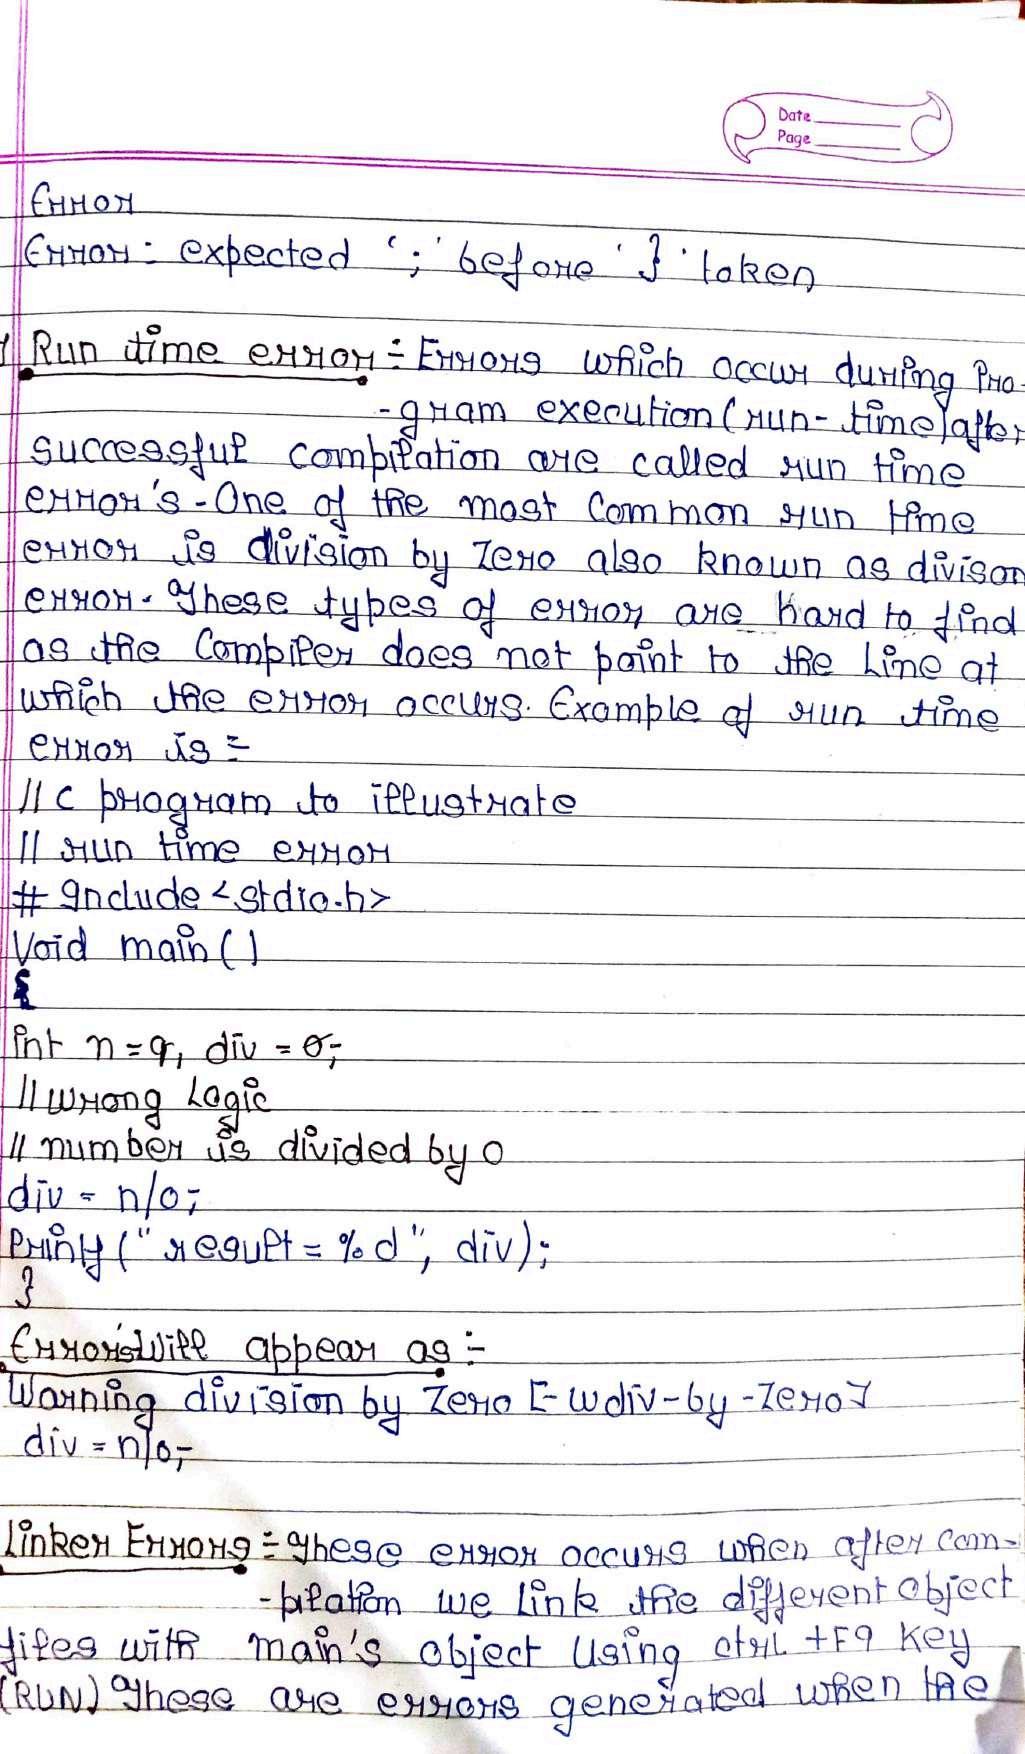 Date
Page
Error
Error: expected ';' before '}' token
Run time error:- Errors which occur during Pro-
-gram execution (run-time) after
successful compilation are called run time
error's - One of the most Common run time
error is division by Zero also known as divison
error. These types of error are hard to find
as the Compiler does not point to the Line at
which the error occurs. Example of run time
error is =
// C program to illustrate
// run time error
# Include <stdio.h>
Void main()
{
int n = 9, div = 0;
// wrong Logic
// number is divided by 0
div = n/0;
Printf (" result = %d", div);
}
Error's Will appear as :-
Warning division by Zero [-wdiv-by-Zero]
div = n/0;
Linker Errors :- These error occurs when after com-
-pilation we link the different object
files with main's object Using ctrl +F9 Key
(RUN) These are errors generated when the